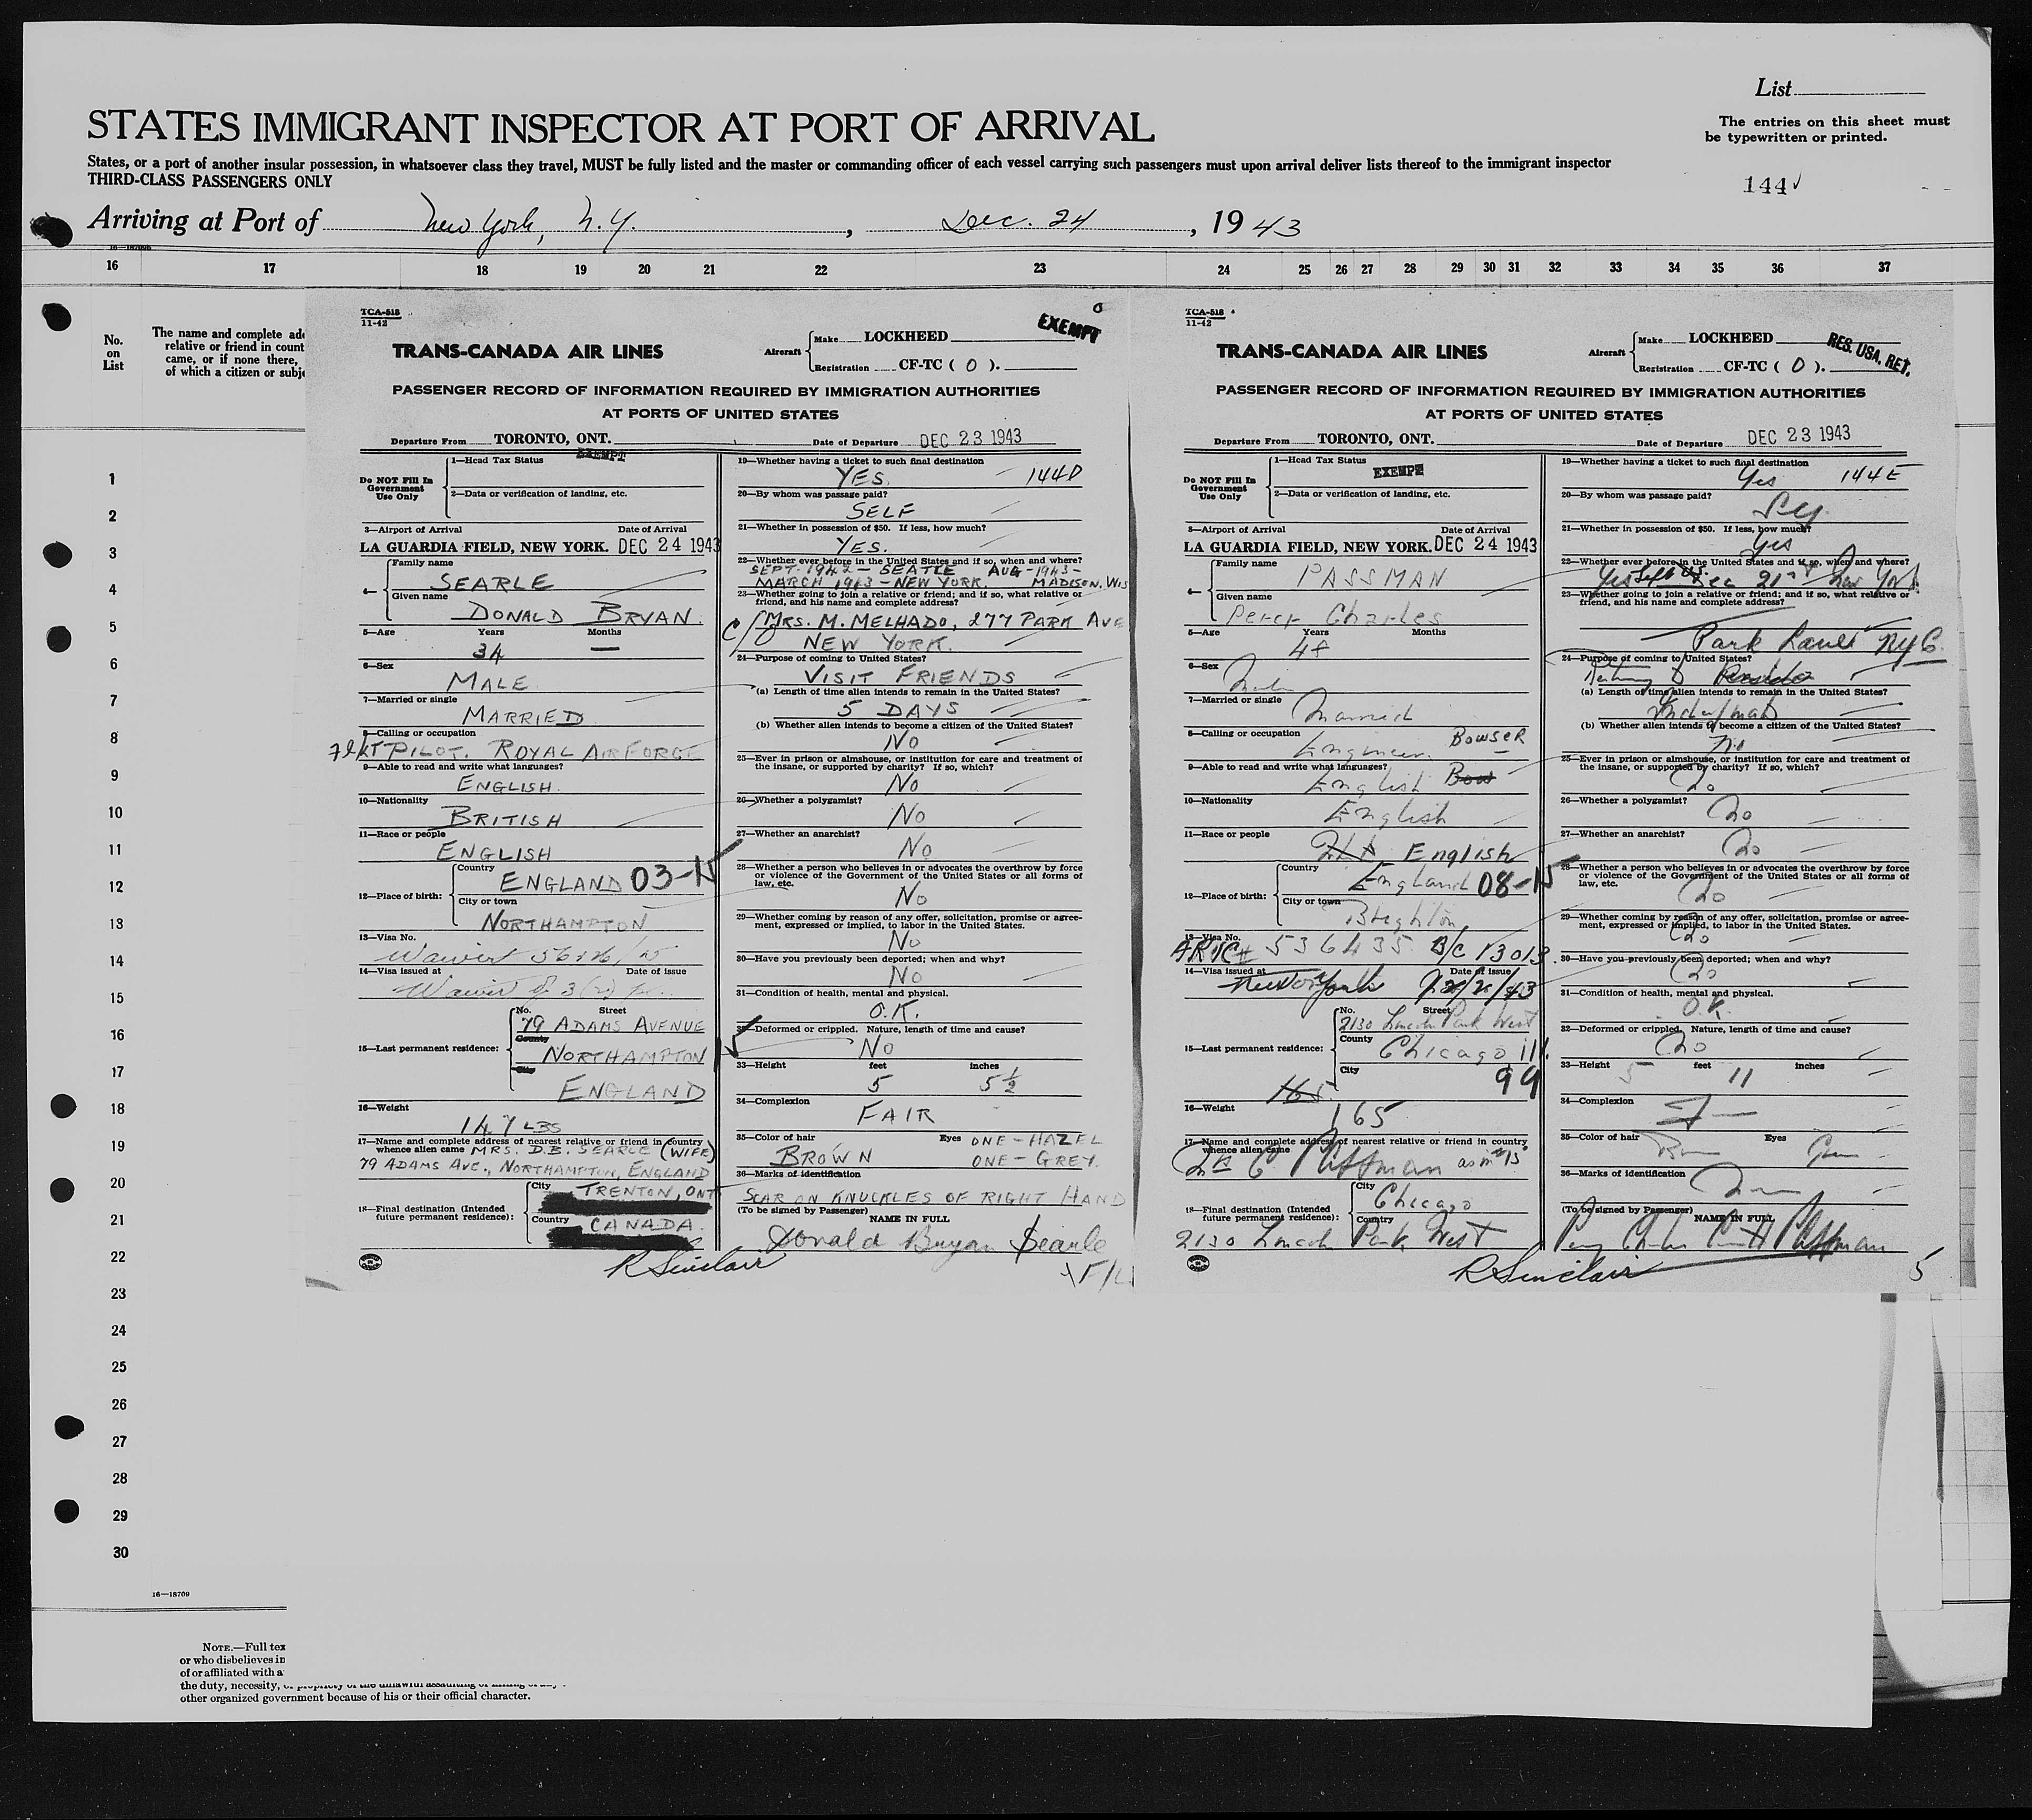 List
STATES IMMIGRANT INSPECTOR AT PORT OF ARRIVAL
The entries on this sheet must
be typewritten or printed.
States, or a port of another insular possession, in whatsoever class they travel, MUST be fully listed and the master or commanding officer of each vessel carrying such passengers must upon arrival deliver lists thereof to the immigrant inspector
THIRD-CLASS PASSENGERS ONLY
144
Arriving at Port of New York, N.Y. , Dec. 24 , 1943
16 17 18 19 20 21 22 23 24 25 26 27 28 29 30 31 32 33 34 35 36 37
No.
on
List
The name and complete add
relative or friend in count
came, or if none there,
of which a citizen or subje
1
2
3
4
5
6
7
8
9
10
11
12
13
14
15
16
17
18
19
20
21
22
23
24
25
26
27
28
29
30
TCA-518
11-42
EXEMPT
TRANS-CANADA AIR LINES
Aircraft Make LOCKHEED
Registration CF-TC ( O ).
PASSENGER RECORD OF INFORMATION REQUIRED BY IMMIGRATION AUTHORITIES
AT PORTS OF UNITED STATES
Departure From TORONTO, ONT. Date of Departure DEC 23 1943
Do NOT Fill In
Government
Use Only
1—Head Tax Status EXEMPT
2—Data or verification of landing, etc.
3—Airport of Arrival Date of Arrival
LA GUARDIA FIELD, NEW YORK. DEC 24 1943
4— Family name
SEARLE
Given name
DONALD BRYAN.
5—Age Years Months
34 —
6—Sex
MALE
7—Married or single
MARRIED
8—Calling or occupation
PILOT. ROYAL AIR FORCE
9—Able to read and write what languages?
ENGLISH.
10—Nationality
BRITISH
11—Race or people
ENGLISH
12—Place of birth: Country
ENGLAND 03-N
City or town
NORTHAMPTON
13—Visa No.
14—Visa issued at Date of issue
15—Last permanent residence: No. Street
79 ADAMS AVENUE
County
NORTHAMPTON
City
ENGLAND
16—Weight
147 LBS
17—Name and complete address of nearest relative or friend in country
whence alien came MRS. D.B. SEARLE (WIFE)
79 ADAMS AVE., NORTHAMPTON, ENGLAND
18—Final destination (Intended
future permanent residence):
City TRENTON, ONT
Country CANADA.
19—Whether having a ticket to such final destination
YES. 144D
20—By whom was passage paid?
SELF
21—Whether in possession of $50. If less, how much?
YES.
22—Whether ever before in the United States and if so, when and where?
SEPT. 1942 — SEATLE AUG-1943-
MARCH 1943 - NEW YORK. MADISON. WIS
23—Whether going to join a relative or friend; and if so, what relative or
friend, and his name and complete address?
C/O MRS. M. MELHADO, 277 PARK AVE
NEW YORK.
24—Purpose of coming to United States?
VISIT FRIENDS
(a) Length of time alien intends to remain in the United States?
5 DAYS
(b) Whether alien intends to become a citizen of the United States?
NO
25—Ever in prison or almshouse, or institution for care and treatment of
the insane, or supported by charity? If so, which?
NO
26—Whether a polygamist?
NO
27—Whether an anarchist?
NO
28—Whether a person who believes in or advocates the overthrow by force
or violence of the Government of the United States or all forms of
law, etc.
NO
29—Whether coming by reason of any offer, solicitation, promise or agree-
ment, expressed or implied, to labor in the United States.
NO
30—Have you previously been deported; when and why?
NO
31—Condition of health, mental and physical.
O.K.
32—Deformed or crippled. Nature, length of time and cause?
NO
33—Height feet inches
5 5½
34—Complexion
FAIR
35—Color of hair Eyes ONE - HAZEL
BROWN ONE - GREY.
36—Marks of identification
SCAR ON KNUCKLES OF RIGHT HAND
(To be signed by Passenger)
NAME IN FULL
Donald Bryan Searle
R Sinclair
F/L
TCA-518
11-42
RES. USA. RET.
TRANS-CANADA AIR LINES
Aircraft Make LOCKHEED
Registration CF-TC ( O ).
PASSENGER RECORD OF INFORMATION REQUIRED BY IMMIGRATION AUTHORITIES
AT PORTS OF UNITED STATES
Departure From TORONTO, ONT. Date of Departure DEC 23 1943
Do NOT Fill In
Government
Use Only
1—Head Tax Status
EXEMPT
2—Data or verification of landing, etc.
3—Airport of Arrival Date of Arrival
LA GUARDIA FIELD, NEW YORK. DEC 24 1943
4— Family name
PASSMAN
Given name
Percy Charles
5—Age Years Months
48
6—Sex
Male
7—Married or single
Married
8—Calling or occupation
Engineer. BOWSER
9—Able to read and write what languages?
English Bow
10—Nationality
English
11—Race or people
English
12—Place of birth: Country
England 08-N
City or town
Brighton
13—Visa No.
536435 B/C 13013.
14—Visa issued at Date of issue
New York
15—Last permanent residence: No. Street
2130 Lincoln Park West
County
Chicago ill.
City
99
165
16—Weight
165
17—Name and complete address of nearest relative or friend in country
whence alien came
C Passman as in #15
18—Final destination (Intended
future permanent residence):
City
Chicago
Country
2130 Lincoln Park West
19—Whether having a ticket to such final destination
Yes 144E
20—By whom was passage paid?
21—Whether in possession of $50. If less, how much?
Yes
22—Whether ever before in the United States and if so, when and where?
Yes Dec 21st New York
23—Whether going to join a relative or friend; and if so, what relative or
friend, and his name and complete address?
Park NYC.
24—Purpose of coming to United States?
(a) Length of time alien intends to remain in the United States?
(b) Whether alien intends to become a citizen of the United States?
no
25—Ever in prison or almshouse, or institution for care and treatment of
the insane, or supported by charity? If so, which?
No
26—Whether a polygamist?
No
27—Whether an anarchist?
No
28—Whether a person who believes in or advocates the overthrow by force
or violence of the Government of the United States or all forms of
law, etc.
No
29—Whether coming by reason of any offer, solicitation, promise or agree-
ment, expressed or implied, to labor in the United States.
No
30—Have you previously been deported; when and why?
No
31—Condition of health, mental and physical.
O.K.
32—Deformed or crippled. Nature, length of time and cause?
No
33—Height feet inches
5 11
34—Complexion
35—Color of hair Eyes
36—Marks of identification
(To be signed by Passenger)
NAME IN FULL
R Sinclair
5
16—18709
NOTE.—Full tex
or who disbelieves in
of or affiliated with a
the duty, necessity,
other organized government because of his or their official character.